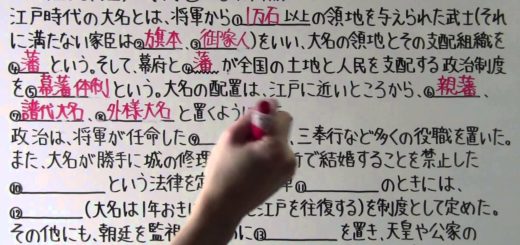 江戸時代の大名とは、将軍から①1万石以上の領地を与えられた武士(それ
に満たない家臣は②旗本、③御家人)をいい、大名の領地とその支配組織を
④藩という。そして、幕府と④藩が全国の土地と人民を支配する政治制度
を⑤幕藩体制という。大名の配置は、江戸に近いところから、⑥親藩、
⑦譜代大名、⑧外様大名と置くように
政治は、将軍が任命した⑨ 、三奉行など多くの役職を置いた。
また、大名が勝手に城の修理 で結婚することを禁止した
⑩ という法律を定 ⑪ のときには、
⑫ (大名は1年おき 江戸を往復する)を制度として定めた。
その他にも、朝廷を監視 に⑬ を置き、天皇や公家の